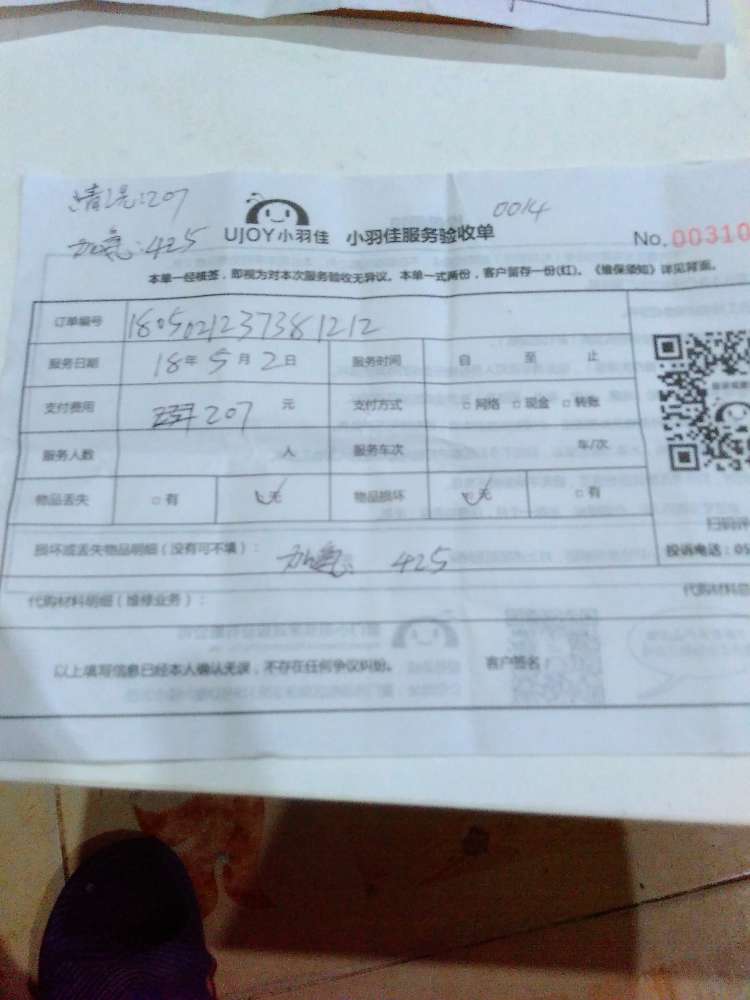 清洗:207
0014
加氟:425
UJOY小羽佳 小羽佳服务验收单
No.00310
本单一经核签，即视为对本次服务验收无异议。本单一式两份，客户留存一份(红)。《维保须知》详见背面。
订单编号 1805021237381212
服务日期 18年5月2日 服务时间 自 至 止
支付费用 207 元 支付方式 □网络 □现金 □转账
服务人数 人 服务车次 车/次
物品丢失 □有 ☑无 物品损坏 ☑无 □有
扫码评
损坏或丢失物品明细（没有可不填）： 加氟 425 投诉电话：05
代购材料明细（维修业务）： 代购材料总
以上填写信息已经本人确认无误，不存在任何争议纠纷。 客户签名：